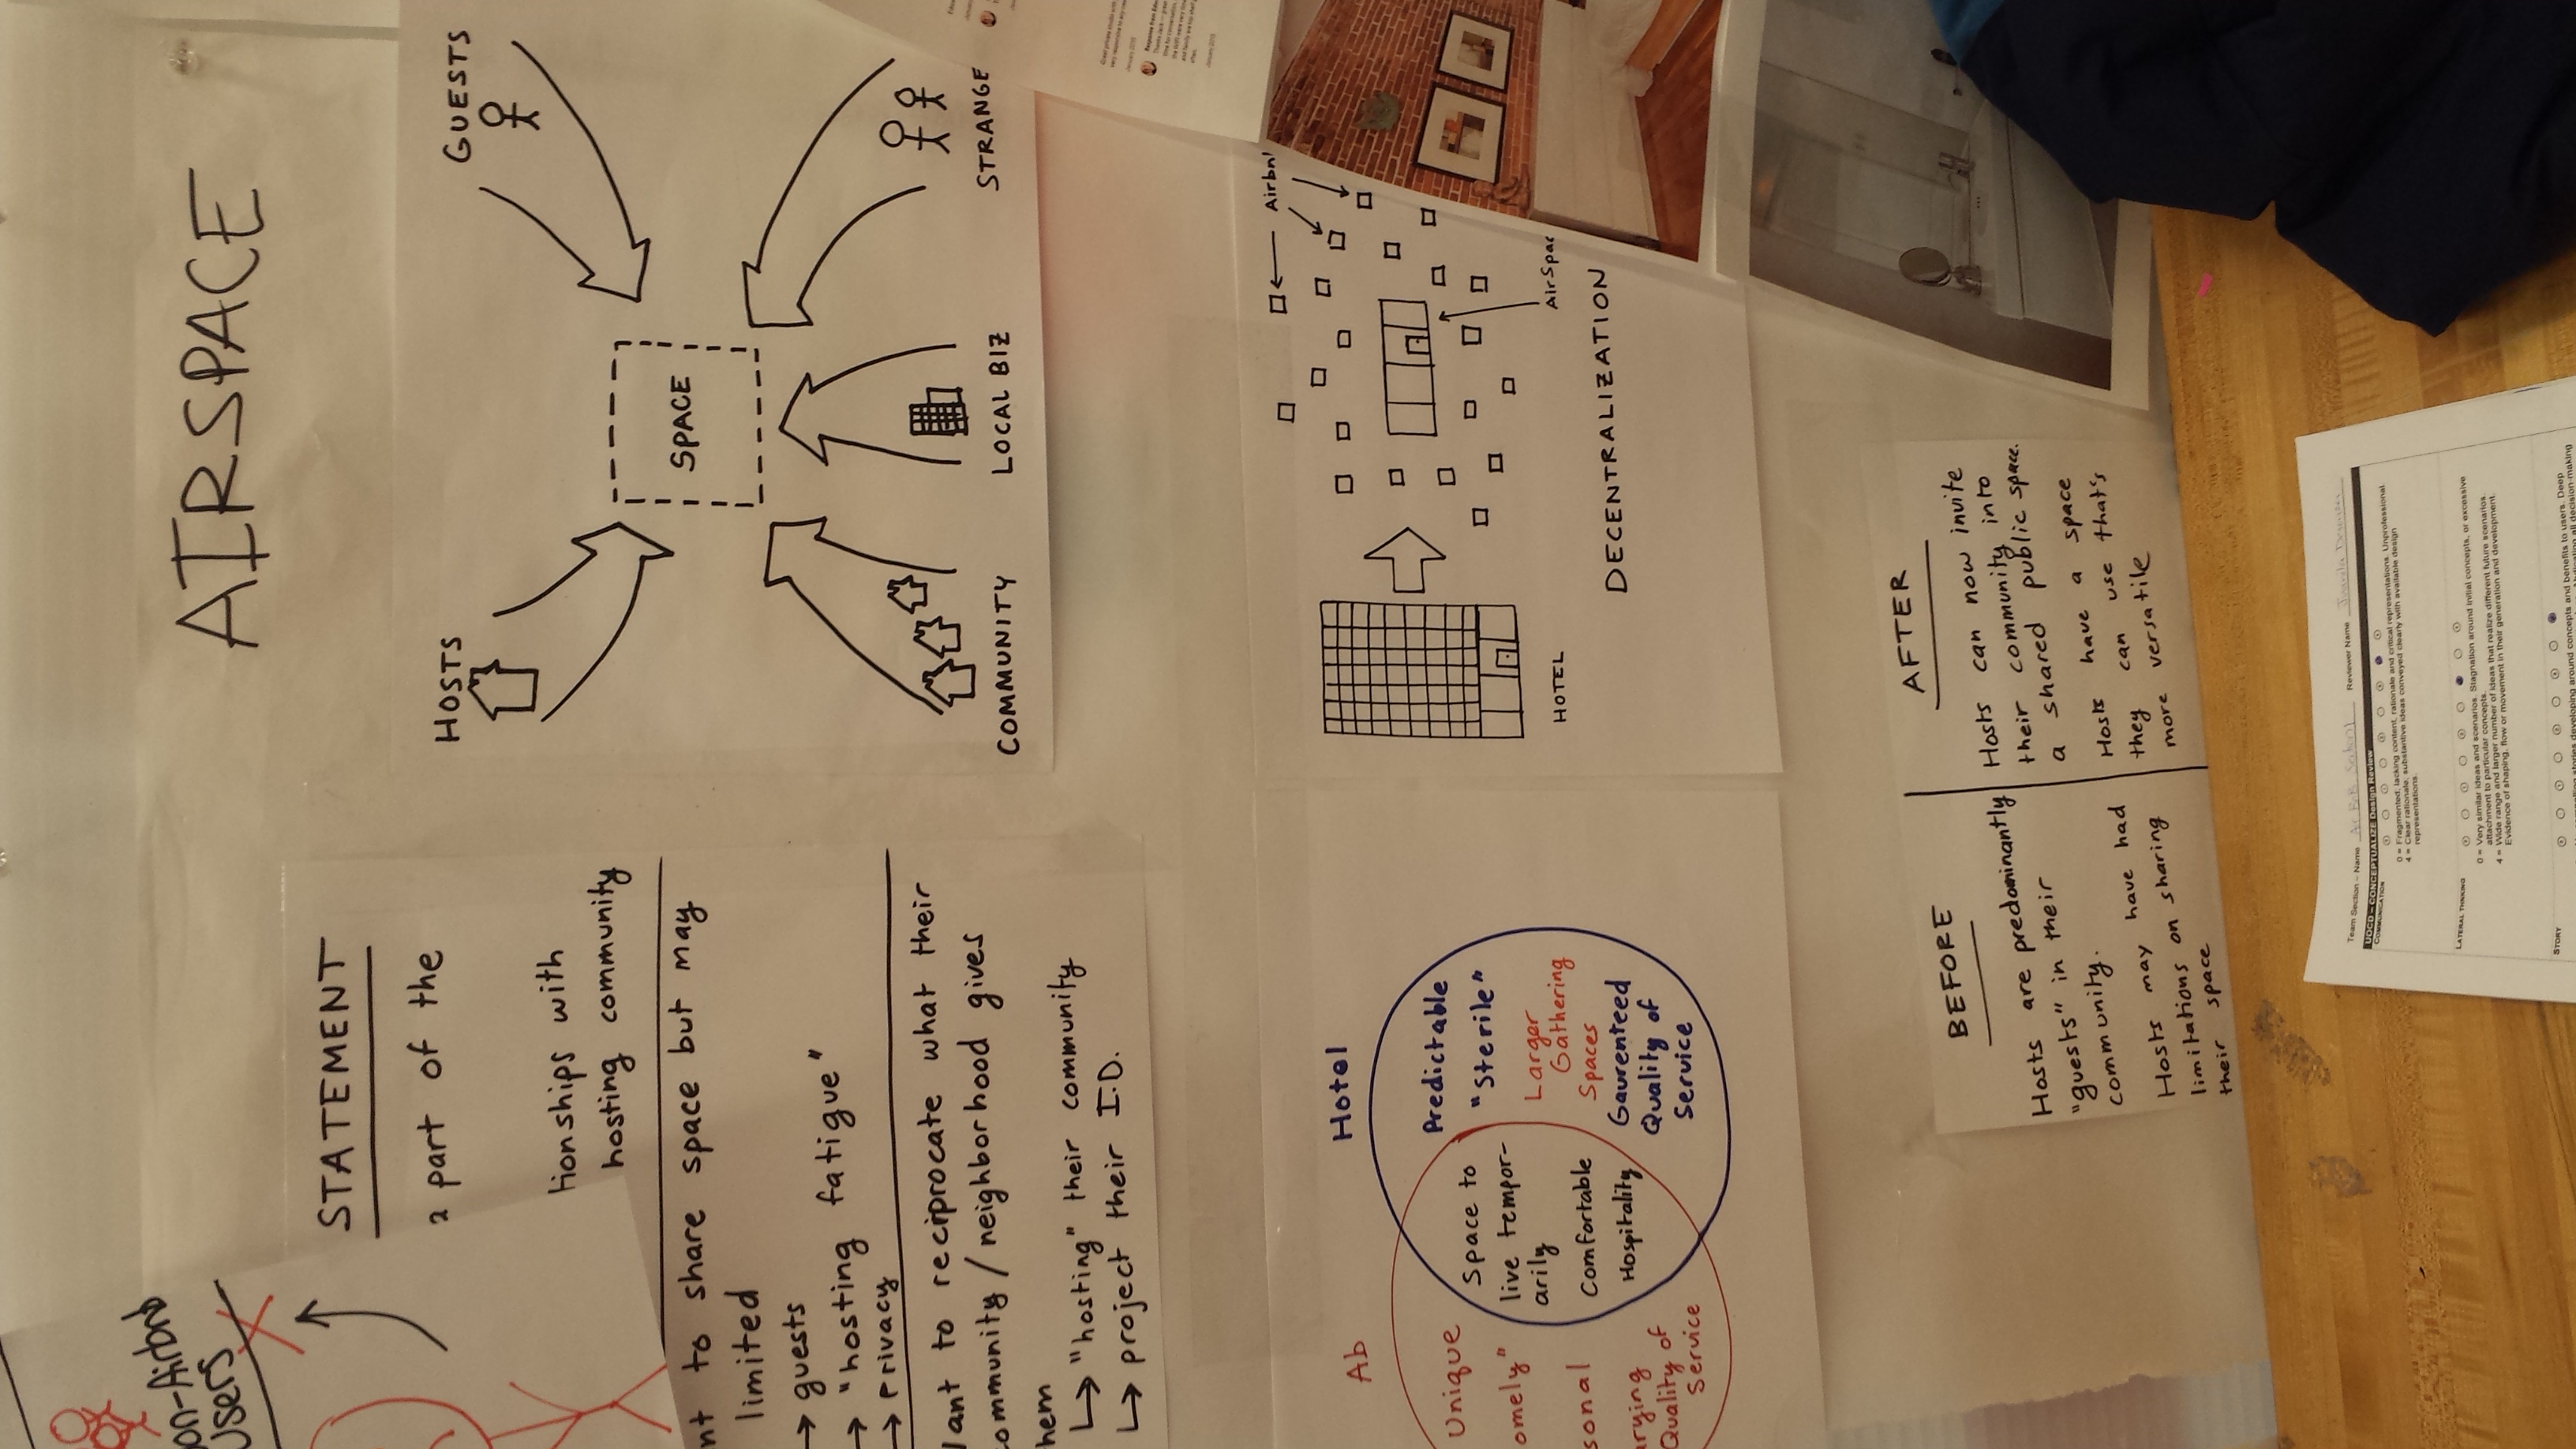 on-Airbnb
Users
AIRSPACE
STATEMENT
a part of the
tionships with
hosting community
nt to share space but may
limited
→ guests
→ "hosting fatigue"
→ Privacy
ant to reciprocate what their
ommunity / neighborhood gives
hem
↳ "hosting" their community
↳ project their I.D.
HOSTS
GUESTS
SPACE
COMMUNITY
LOCAL BIZ
STRANGE
Ab
Hotel
Unique
omely"
sonal
arying
Quality of
Service
Space to
live tempor-
arily
Comfortable
Hospitality
Predictable
"Sterile"
Larger
Gathering
Spaces
Gaurenteed
Quality of
Service
Airbn
HOTEL
AirSpac
DECENTRALIZATION
BEFORE
Hosts are predominantly
"guests" in their
community.
Hosts may have had
limitations on sharing
their space
AFTER
Hosts can now invite
their community into
a shared public space.
Hosts have a space
they can use that's
more versatile
January 2015
Team Section – Name Air BnB Section 1 Reviewer Name
UOCD – CONCEPTUALIZE Design Review
COMMUNICATION
0 = Fragmented; lacking content, rationale and critical representations. Unprofessional.
4 = Clear rationale; substantive ideas conveyed clearly with available design
representations.
LATERAL THINKING
0 = Very similar ideas and scenarios. Stagnation around initial concepts, or excessive
attachment to particular concepts.
4 = Wide range and larger number of ideas that realize different future scenarios.
Evidence of shaping, flow or movement in their generation and development.
STORY
stories developing around concepts and benefits to users. Deep
all decision-making